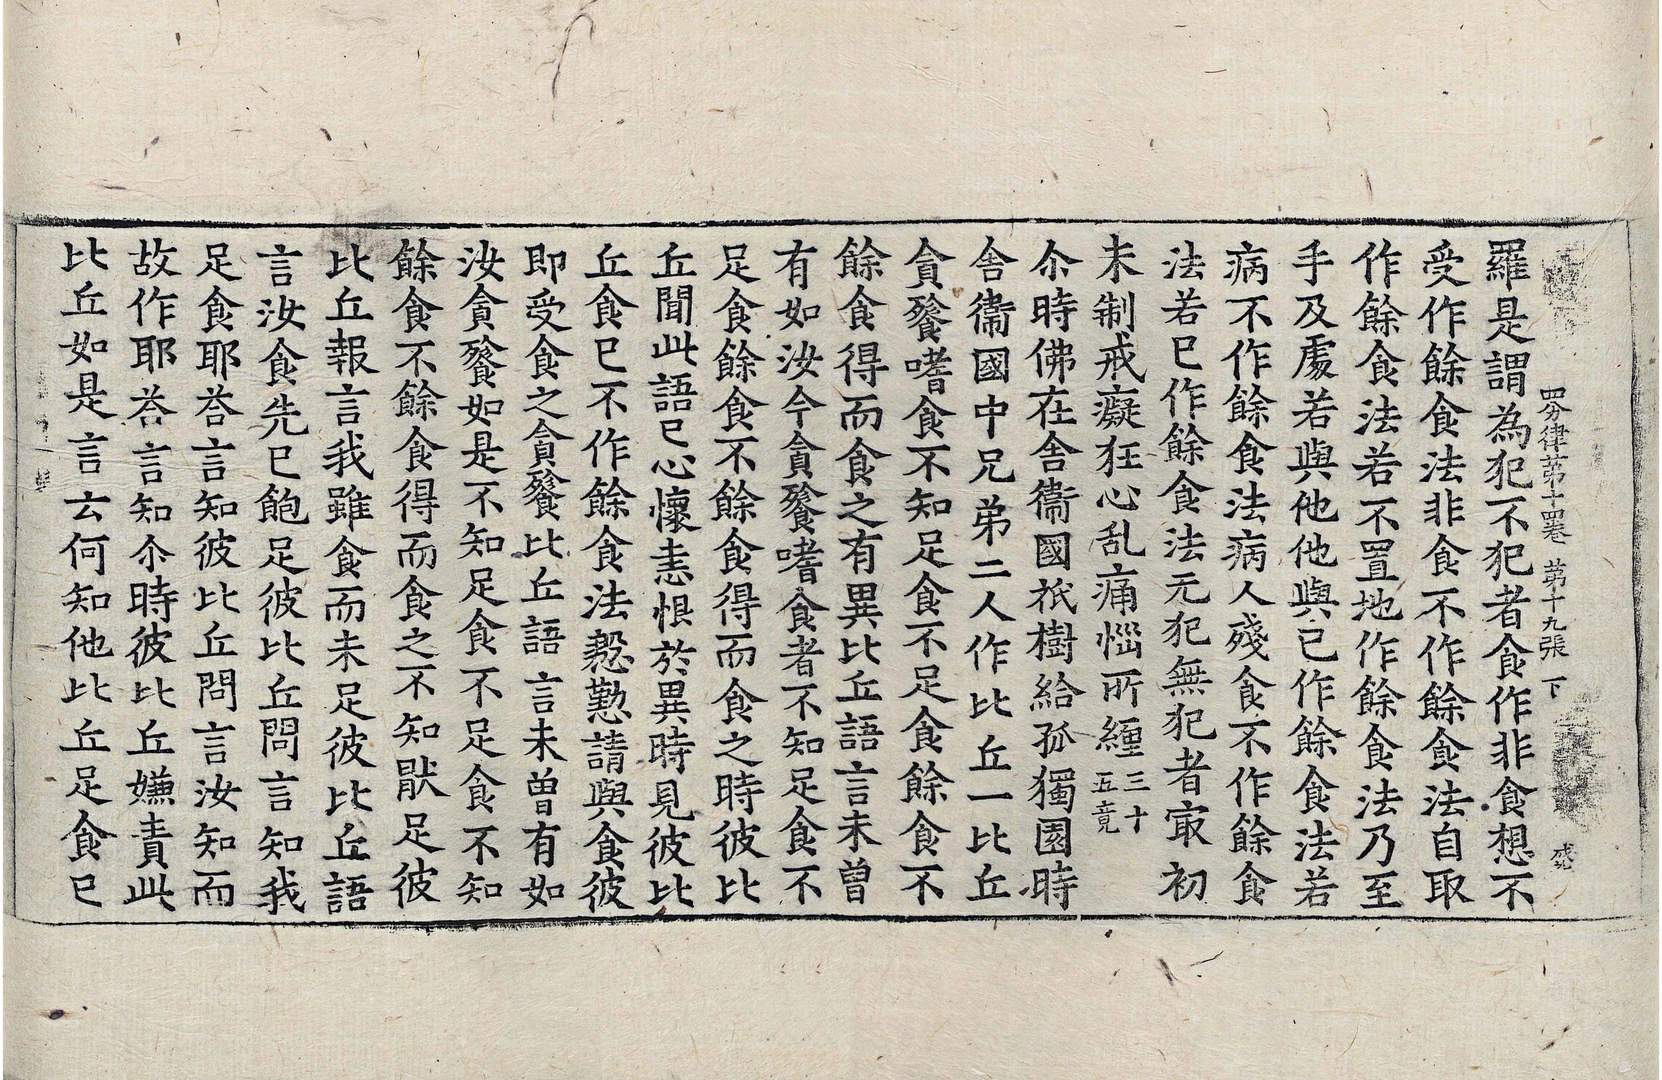 四分律第十四卷 第十九張 下 盛
羅是謂為犯不犯者食作非食想不
受作餘食法非食不作餘食法自取
作餘食法若不置地作餘食法乃至
手及處若與他他與已作餘食法若
病不作餘食法病人殘食不作餘食
法若已作餘食法无犯無犯者㝡初
未制戒癡狂心乱痛惱所纏三十五竟
尒時佛在舍衞國祇樹給孤獨園時
舍衞國中兄弟二人作比丘一比丘
貪餮嗜食不知足食不足食餘食不
餘食得而食之有異比丘語言未曾
有如汝今貪餮嗜食者不知足食不
足食餘食不餘食得而食之時彼比
丘聞此語已心懷恚恨於異時見彼比
丘食已不作餘食法慇懃請與食彼
即受食之貪餮比丘語言未曾有如
汝貪餮如是不知足食不足食不知
餘食不餘食得而食之不知猒足彼
比丘報言我雖食而未足彼比丘語
言汝食先已飽足彼比丘問言知我
足食耶荅言知彼比丘問言汝知而
故作耶荅言知尒時彼比丘嫌責此
比丘如是言云何知他比丘足食已